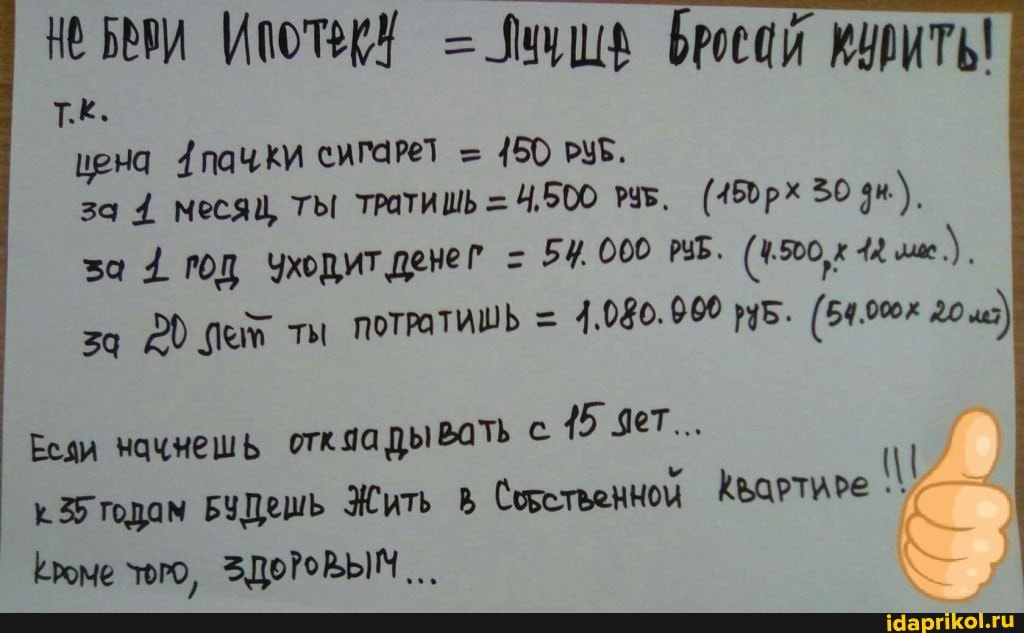 не бери Ипотеку = Лучше Бросай курить!
т.к.
цена 1 пачки сигарет = 150 руб.
за 1 месяц ты тратишь = 4.500 руб. (150 р х 30 дн.).
за 1 год уходит денег = 54.000 руб. (4.500 р. х 12 мес.).
за 20 лет ты потратишь = 1.080.000 руб. (54.000 х 20 лет)
Если начнешь откладывать с 15 лет...
к 35 годам будешь Жить в Собственной квартире !!!
кроме того, здоровым...
idaprikol.ru